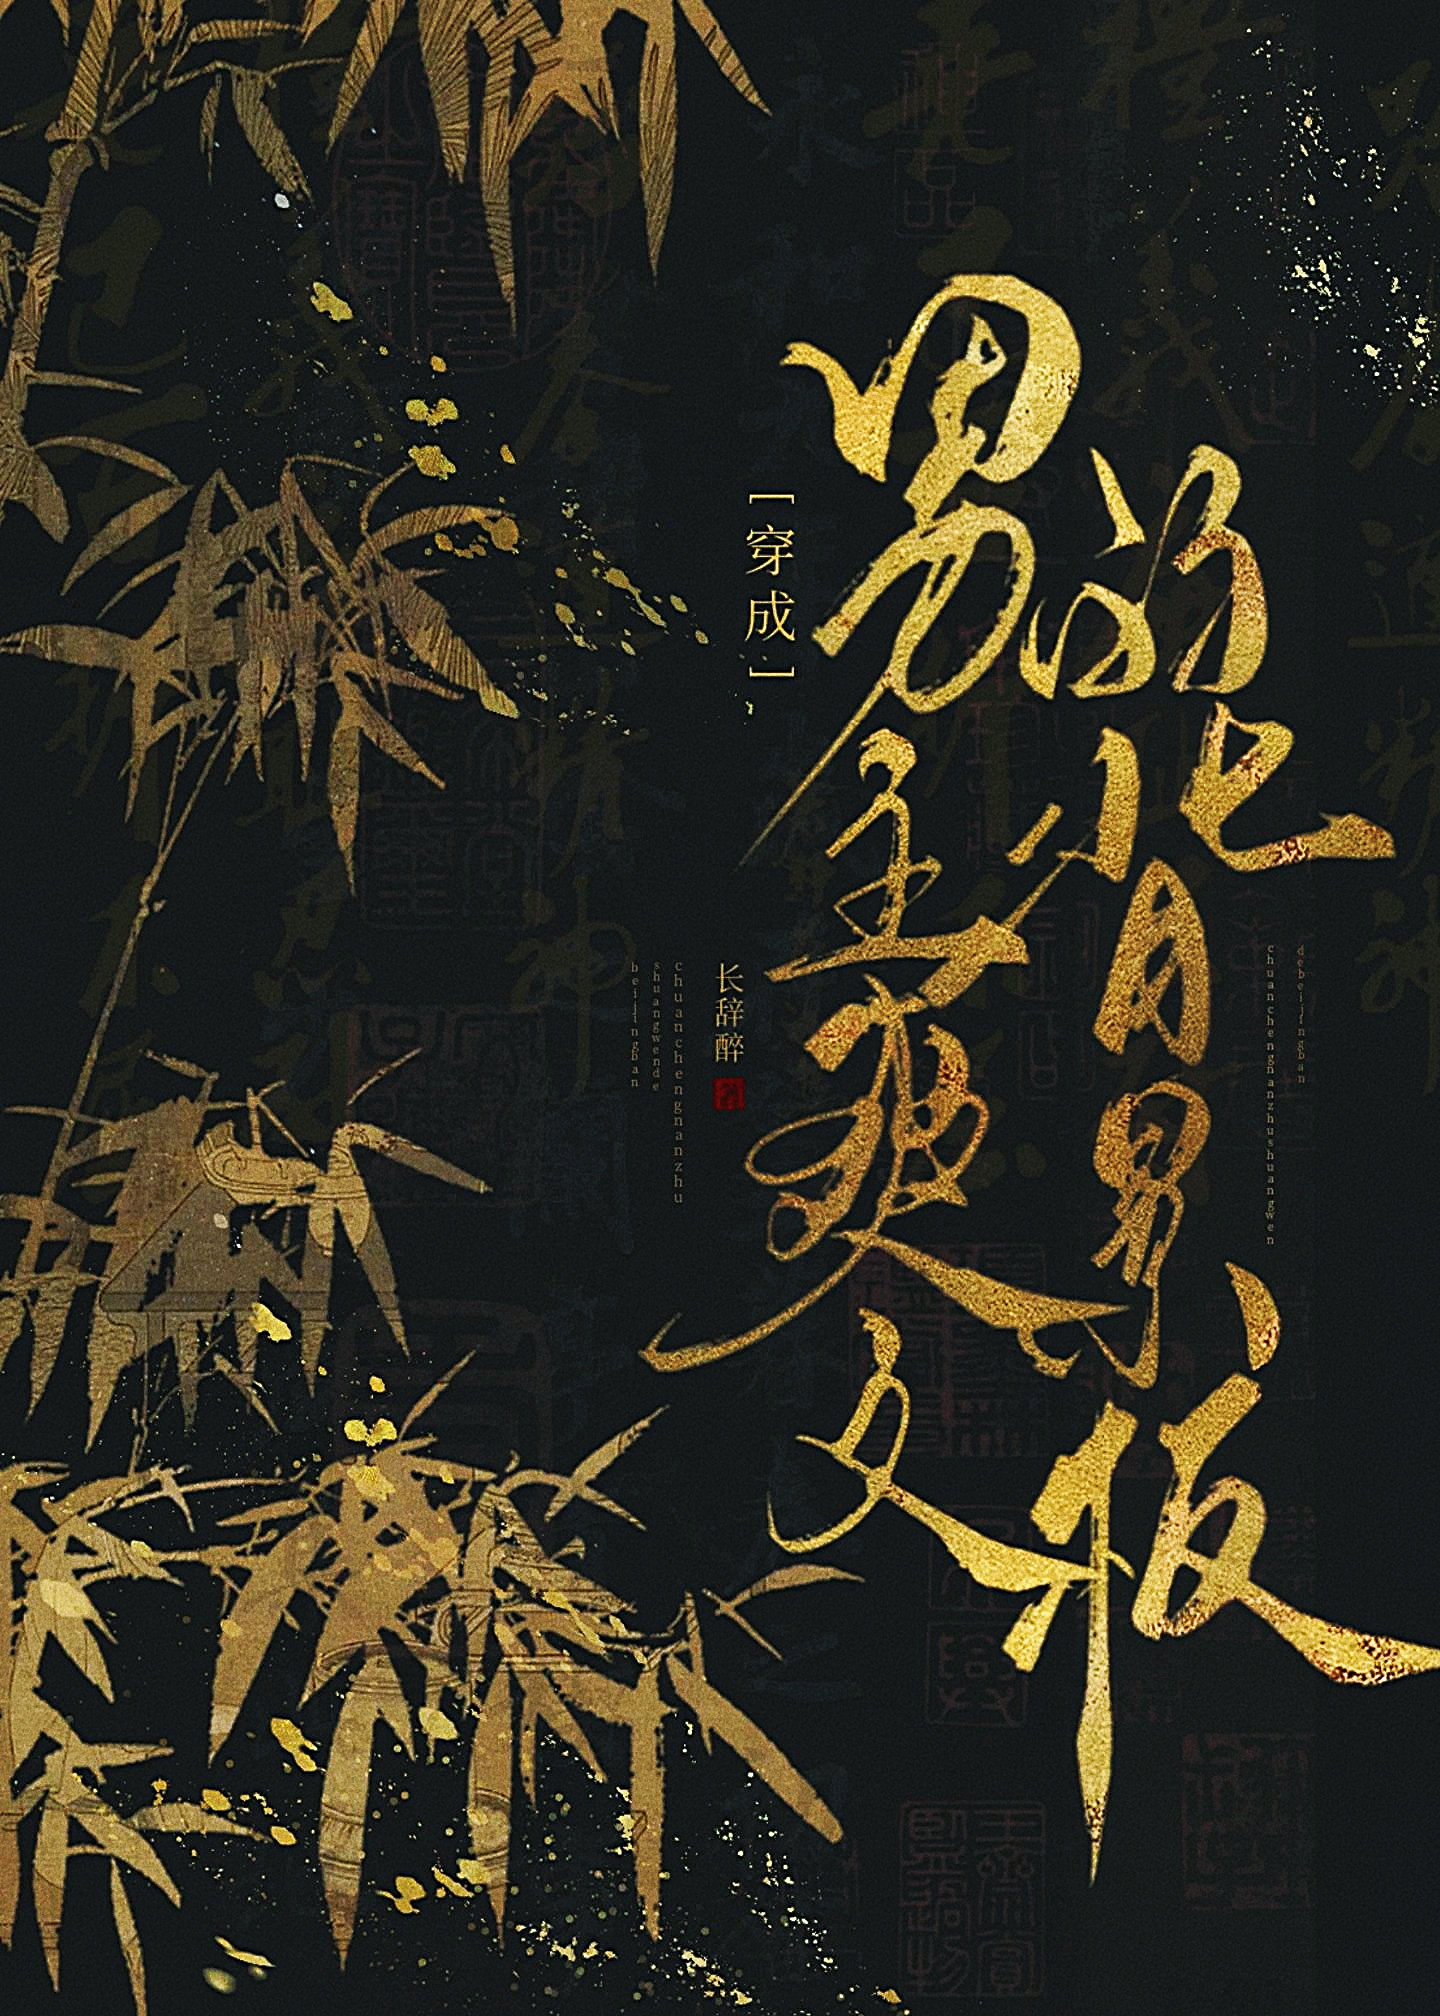 [穿成]
男主爽文
的背景板
长辞醉
chuanchengnanzhu
shuangwende
beijingban
chuanchengnanzhushuangwen
debeijingban